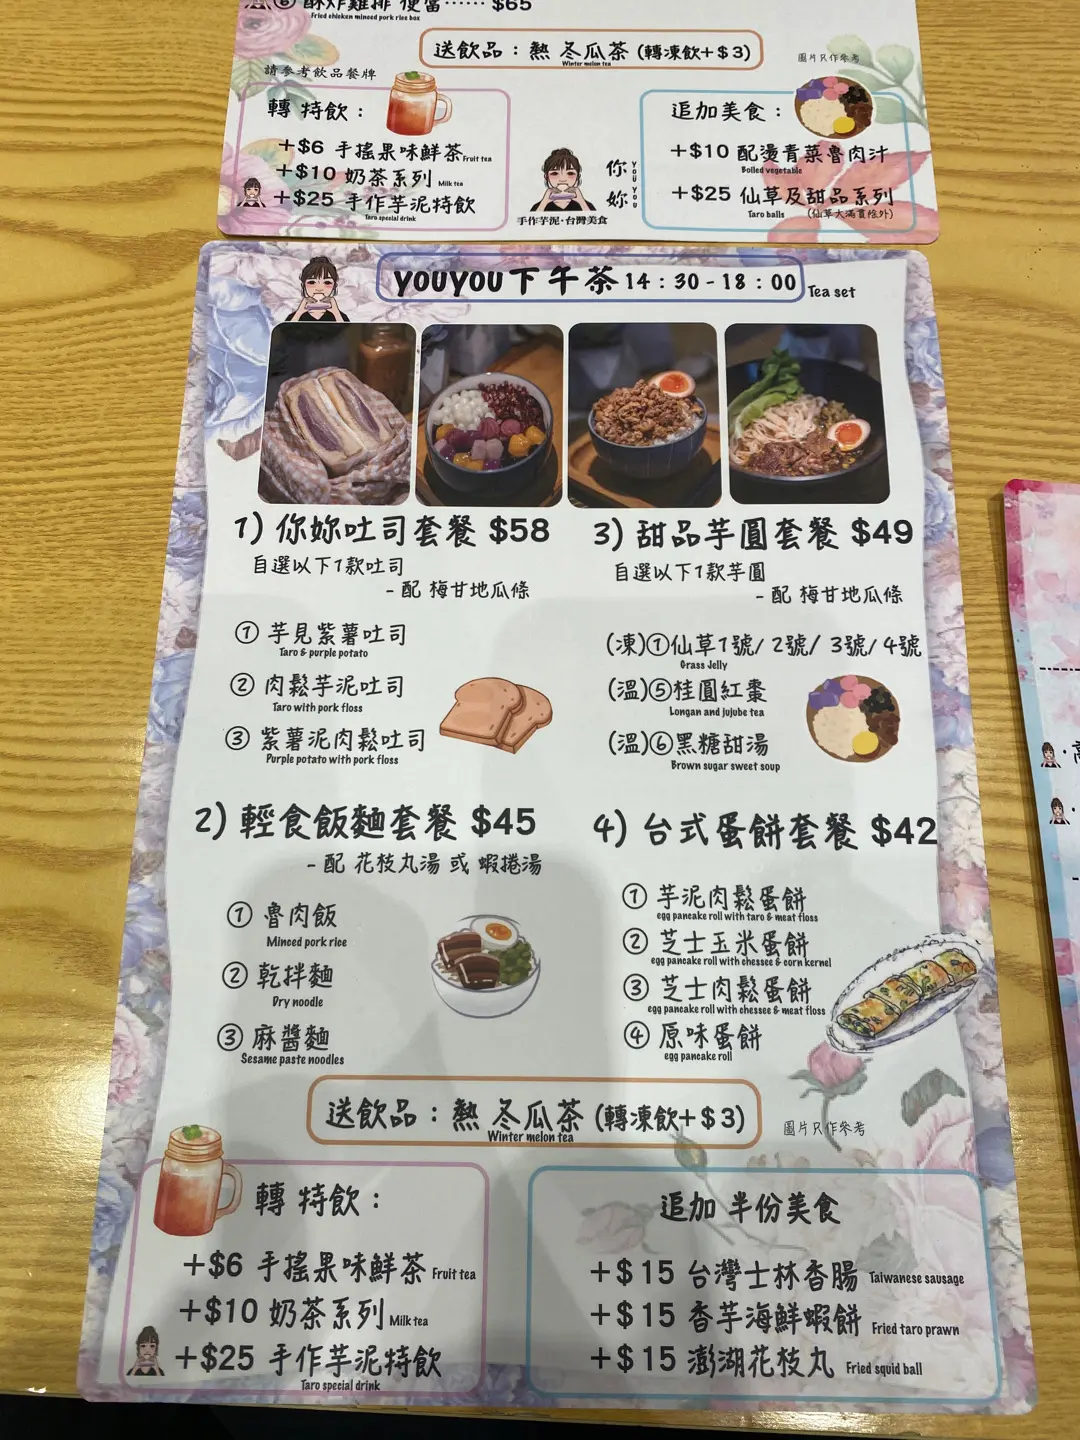 ⑥ 酥炸雞排 便當⋯⋯ $65
Fried chicken minced pork rice box
送飲品：熱 冬瓜茶 (轉凍飲+$3)
Winter melon tea
圖片只作參考
請參考飲品餐牌
轉 特飲：
+$6 手搖果味鮮茶 Fruit tea
+$10 奶茶系列 Milk tea
+$25 手作芋泥特飲
Taro special drink
你妳
YOU YOU
手作芋泥·台灣美食
追加美食：
+$10 配燙青菜魯肉汁
Boiled vegetable
+$25 仙草及甜品系列
Taro balls (仙草大滿貫除外)
YOUYOU下午茶 14：30-18：00 Tea set
1) 你妳吐司套餐 $58
自選以下1款吐司
- 配 梅甘地瓜條
① 芋見紫薯吐司
Taro & purple potato
② 肉鬆芋泥吐司
Taro with pork floss
③ 紫薯泥肉鬆吐司
Purple potato with pork floss
3) 甜品芋圓套餐 $49
自選以下1款芋圓
- 配 梅甘地瓜條
(凍)①仙草1號/ 2號/ 3號/ 4號
Grass Jelly
(溫)⑤桂圓紅棗
Longan and jujube tea
(溫)⑥黑糖甜湯
Brown sugar sweet soup
2) 輕食飯麵套餐 $45
- 配 花枝丸湯 或 蝦捲湯
① 魯肉飯
Minced pork rice
② 乾拌麵
Dry noodle
③ 麻醬麵
Sesame paste noodles
4) 台式蛋餅套餐 $42
① 芋泥肉鬆蛋餅
egg pancake roll with taro & meat floss
② 芝士玉米蛋餅
egg pancake roll with chessee & corn kernel
③ 芝士肉鬆蛋餅
egg pancake roll with chessee & meat floss
④ 原味蛋餅
egg pancake roll
送飲品：熱 冬瓜茶 (轉凍飲+$3)
Winter melon tea
圖片只作參考
轉 特飲：
+$6 手搖果味鮮茶 Fruit tea
+$10 奶茶系列 Milk tea
+$25 手作芋泥特飲
Taro special drink
追加 半份美食
+$15 台灣士林香腸 Taiwanese sausage
+$15 香芋海鮮蝦餅 Fried taro prawn
+$15 澎湖花枝丸 Fried squid ball